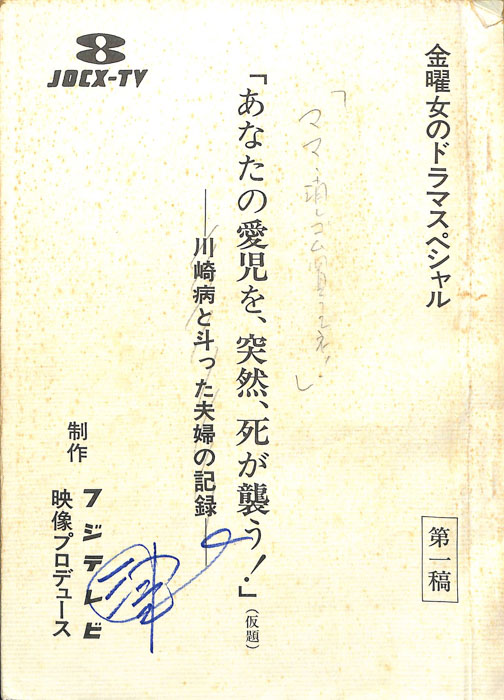 金曜女のドラマスペシャル
第一稿
「ママ、消しゴム買うてネ!」
「あなたの愛児を、突然、死が襲う!」(仮題)
──川崎病と斗った夫婦の記録──
8
JOCX-TV
制作
フジテレビ
映像プロデュース